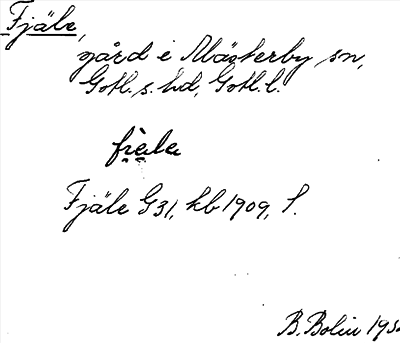 Fjäle,
gård i Mästerby sn,
Gotl. s. hd, Gotl. l.
fi̯èla
Fjäle G31, kb 1909, f.
B. Bolin